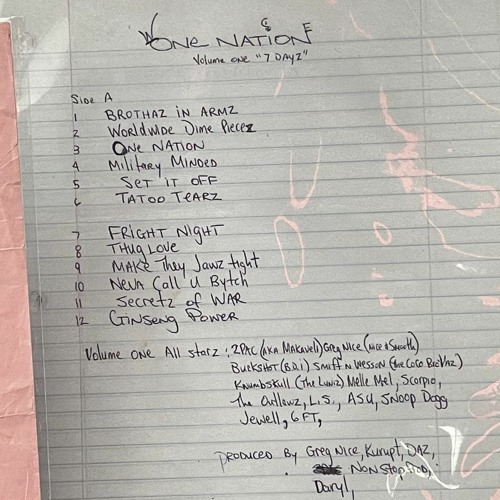 One Nation
Volume one "7 Dayz"
Side A
1 Brothaz in Armz
2 Worldwide Dime Piecez
3 One Nation
4 Military Minded
5 Set it off
6 Tatoo Tearz
7 Fright Night
8 Thug Love
9 Make They Jawz tight
10 Neva Call U Bytch
11 Secretz of War
12 Ginseng Power
Volume one All starz : 2Pac (aka Makaveli) Greg Nice (Nice & Smooth)
Buckshot (B.D.I) Smiff n Wesson (the CoCo BroVaz)
Knumbskull (The Luniz) Melle Mel, Scorpio,
The Outlawz, L.S., ASU, Snoop Dogg
Jewell, 6 FT,
Produced By Greg Nice, Kurupt, DAZ,
Nonstoprod,
Daryl,